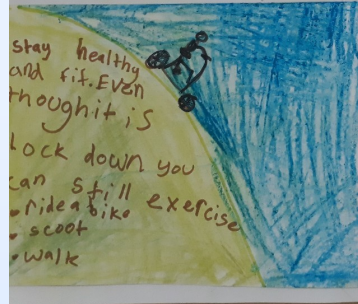 stay healthy
and fit. Even
though it is
Lock down you
can still exercise
• ride a bike
• scoot
• walk